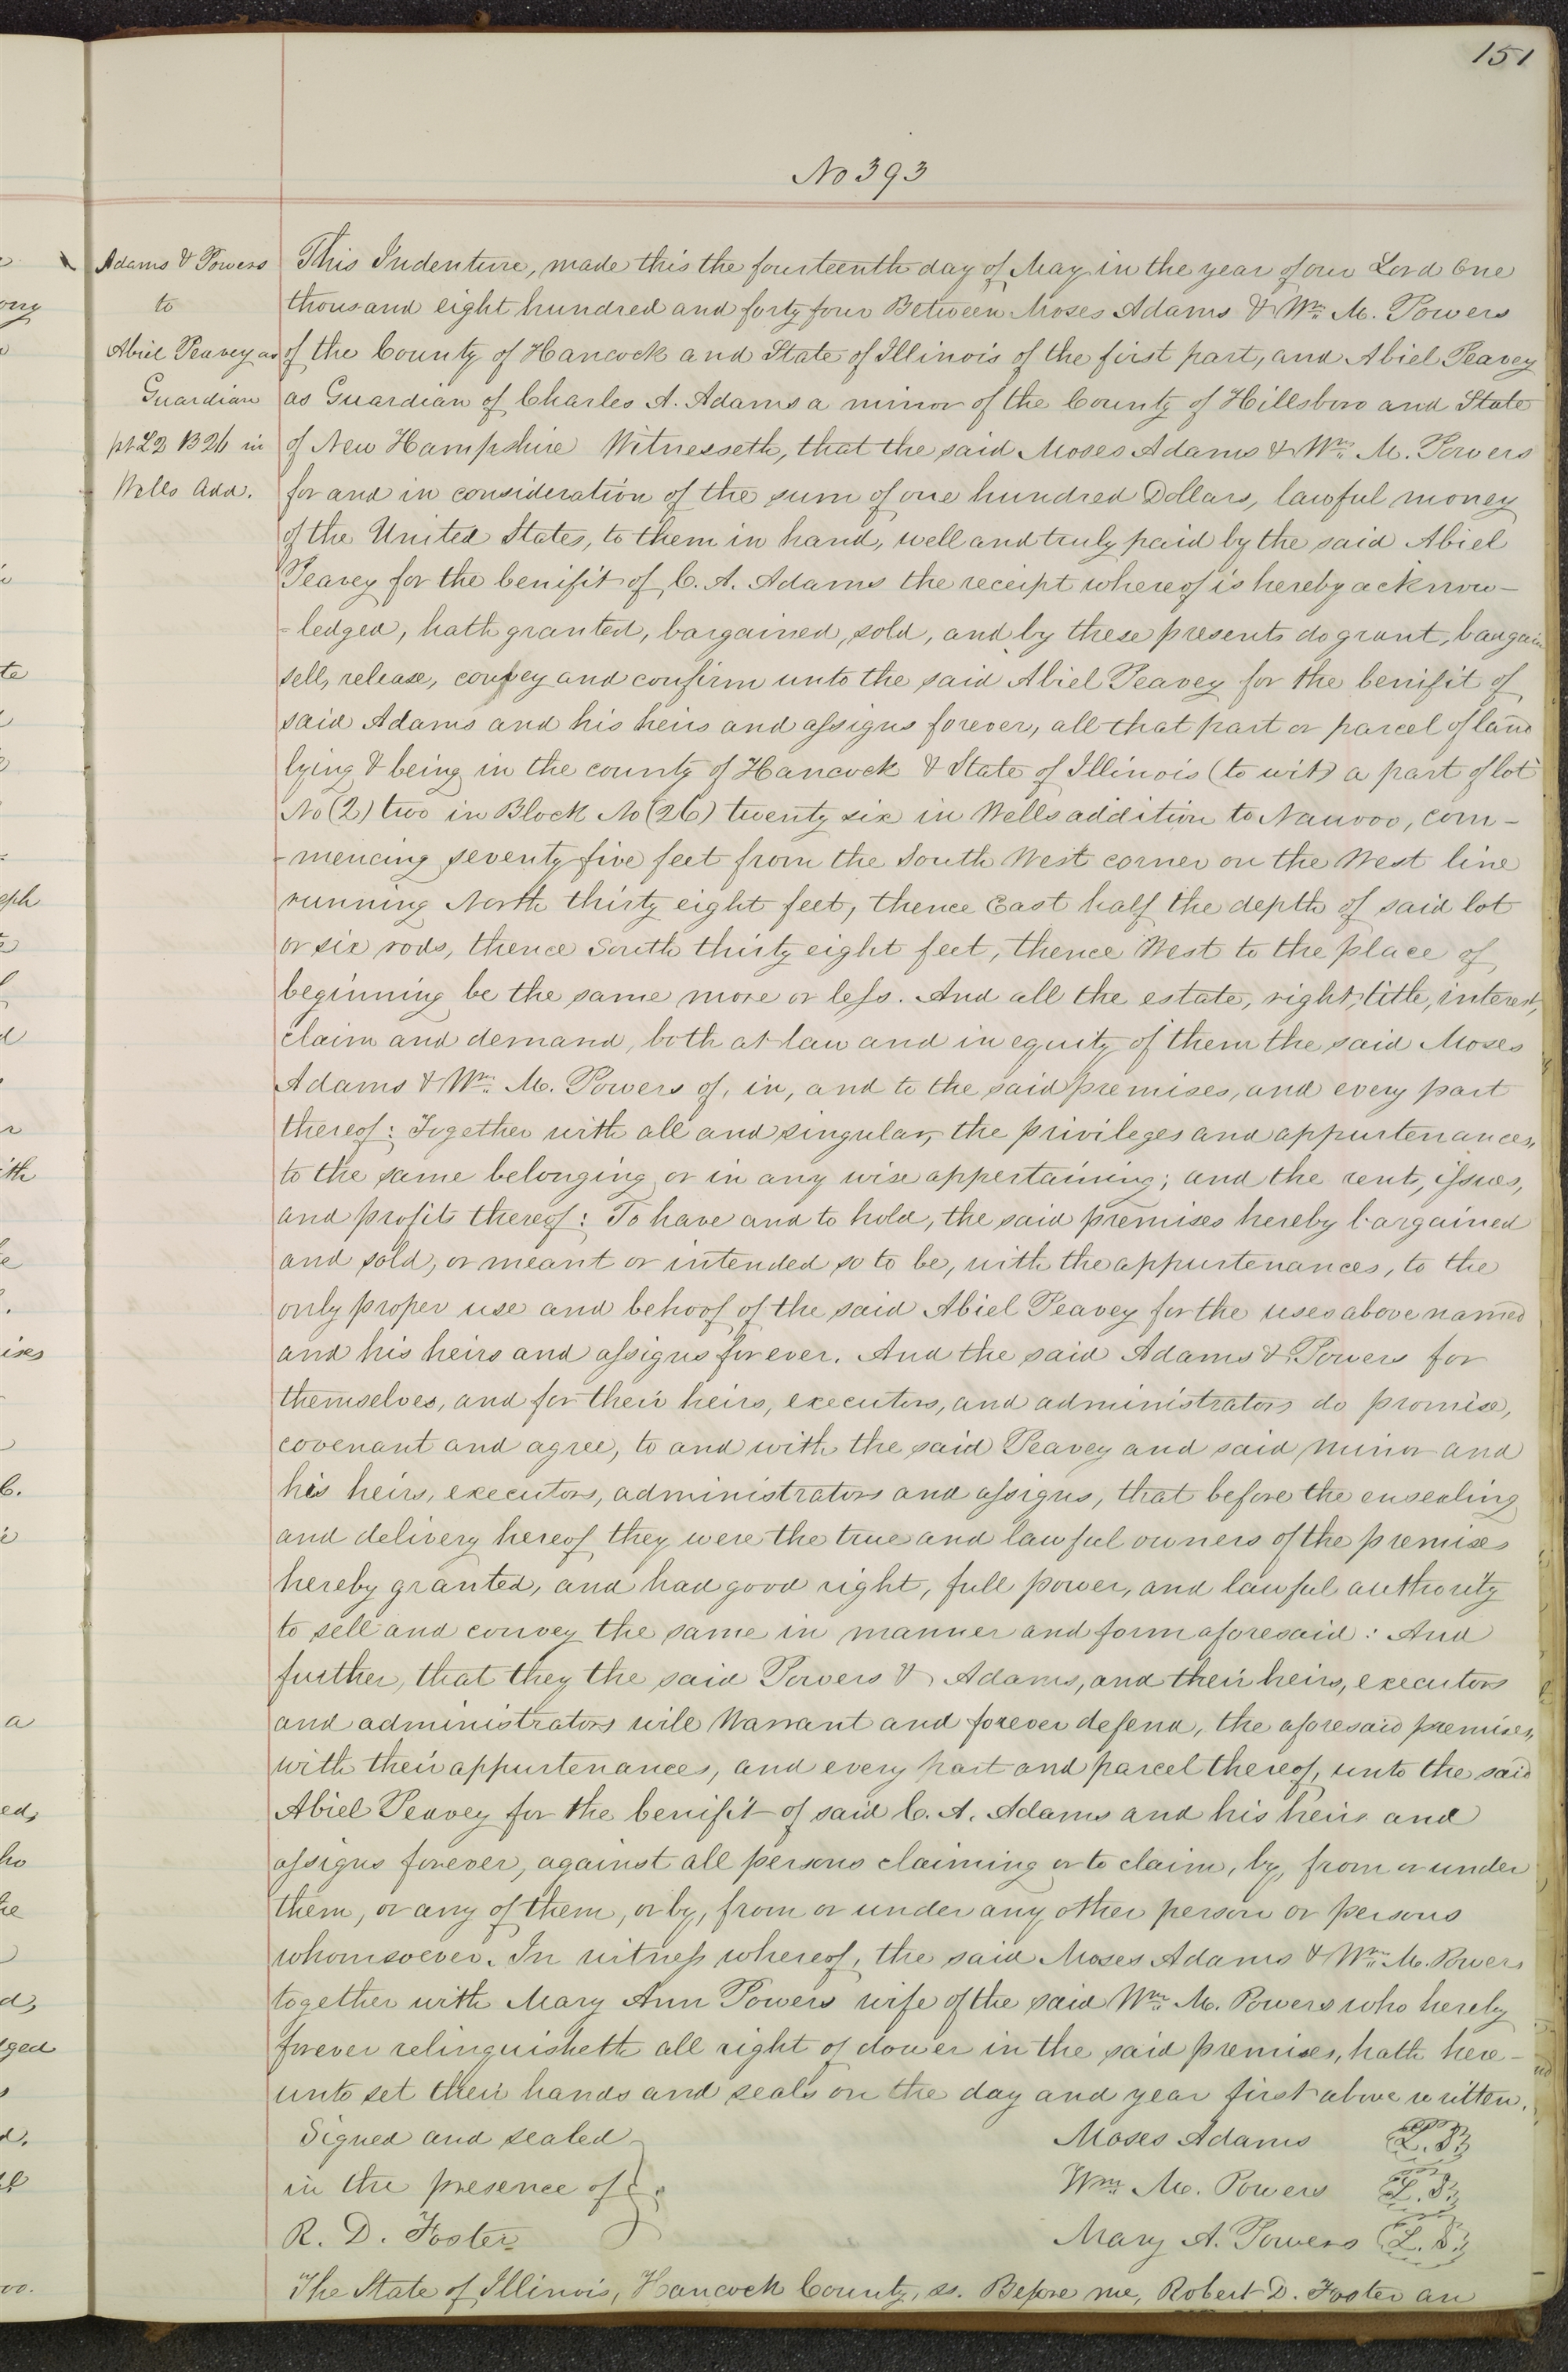 151
No 393
Adams & Powers
to
Abiel Peavey as
Guardian
pt L2 B26 in
Wells Add.
This Indenture, made this the fourteenth day of May in the year of our Lord One
thousand eight hundred and forty four Between Moses Adams & Wm. M. Powers
of the County of Hancock and State of Illinois of the first part, and Abiel Peavey
as Guardian of Charles A. Adams a minor of the County of Hillsboro and State
of New Hampshire Witnesseth, that the said Moses Adams & Wm. M. Powers
for and in consideration of the sum of one hundred Dollars, lawful money
of the United States, to them in hand, well and truly paid by the said Abiel
Peavey for the benifit of C. A. Adams the receipt whereof is hereby acknow-
-ledged, hath granted, bargained, sold, and by these presents do grant, bargain
sell, release, convey and confirm unto the said Abiel Peavey for the benifit of
said Adams and his heirs and assigns forever, all that part or parcel of land
lying & being in the county of Hancock & State of Illinois (to wit) a part of lot
No (2) two in Block No (26) twenty six in Wells addition to Nauvoo, com-
-mencing seventy five feet from the South West corner on the West line
running North thirty eight feet, thence East half the depth of said lot
or six rods, thence South thirty eight feet, thence West to the place of
beginning be the same more or less. And all the estate, right, title, interest,
claim and demand, both at law and in equity of them the said Moses
Adams & Wm. M. Powers of, in, and to the said premises, and every part
thereof: Together with all and singular, the privileges and appurtenances,
to the same belonging or in any wise appertaining; and the rent, issues,
and profits thereof: To have and to hold, the said premises hereby bargained
and sold, or meant or intended so to be, with the appurtenances, to the
only proper use and behoof of the said Abiel Peavey for the uses above named
and his heirs and assigns forever. And the said Adams & Powers for
themselves, and for their heirs, executors, and administrators do promise,
covenant and agree, to and with the said Peavey and said minor and
his heirs, executors, administrators and assigns, that before the ensealing
and delivery hereof they were the true and lawful owners of the premises
hereby granted, and had good right, full power, and lawful authority
to sell and convey the same in manner and form aforesaid: And
further, that they the said Powers & Adams, and their heirs, executors
and administrators will Warrant and forever defend, the aforesaid premises,
with their appurtenances, and every part and parcel thereof, unto the said
Abiel Peavey for the benifit of said C. A. Adams and his heirs and
assigns forever, against all persons claiming or to claim, by, from or under
them, or any of them, or by, from or under any other person or persons
whomsoever. In witness whereof, the said Moses Adams & Wm. M. Powers
together with Mary Ann Powers wife of the said Wm. M. Powers who hereby
forever relinquisheth all right of dower in the said premises, hath here-
unto set their hands and seals on the day and year first above written.
Signed and sealed
in the presence of
R. D. Foster
Moses Adams L.S.
Wm. M. Powers L.S.
Mary A. Powers L.S.
The State of Illinois, Hancock County, ss. Before me, Robert D. Foster an